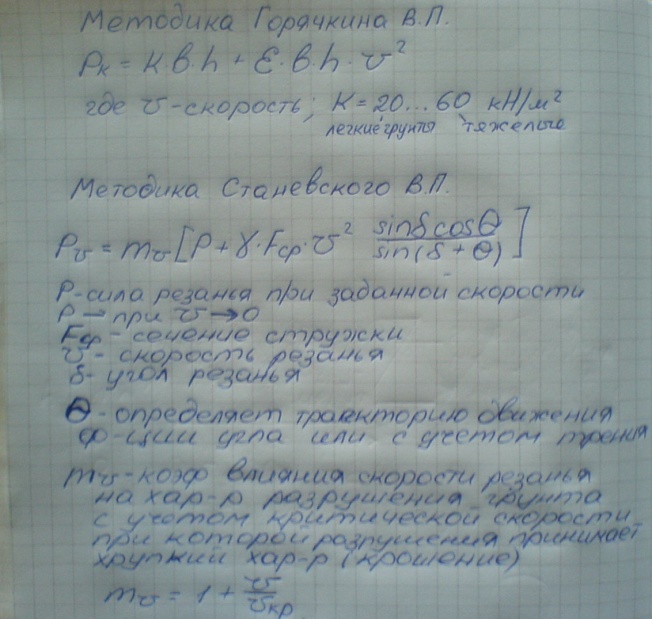 Методика Горячкина В.П.
Pк = K·в·h + Ɛ·в·h·v²
где v-скорость; K = 20...60 кН/м²
легкие грунты тяжелые
Методика Станевского В.П.
Pv = mv[P + γ·Fср·v² sinδcosθ / sin(δ + θ)]
P-сила резанья при заданной скорости
P → при v → 0
Fср - сечение стружки
v - скорость резанья
δ- угол резанья
θ - определяет траекторию движения
ф-ции угла или с учетом трения
mv-коэф влияния скорости резанья
на хар-р разрушения грунта
с учетом критической скорости
при которой разрушения принимает
хрупкий хар-р (крошение)
mv = 1 + v/vкр